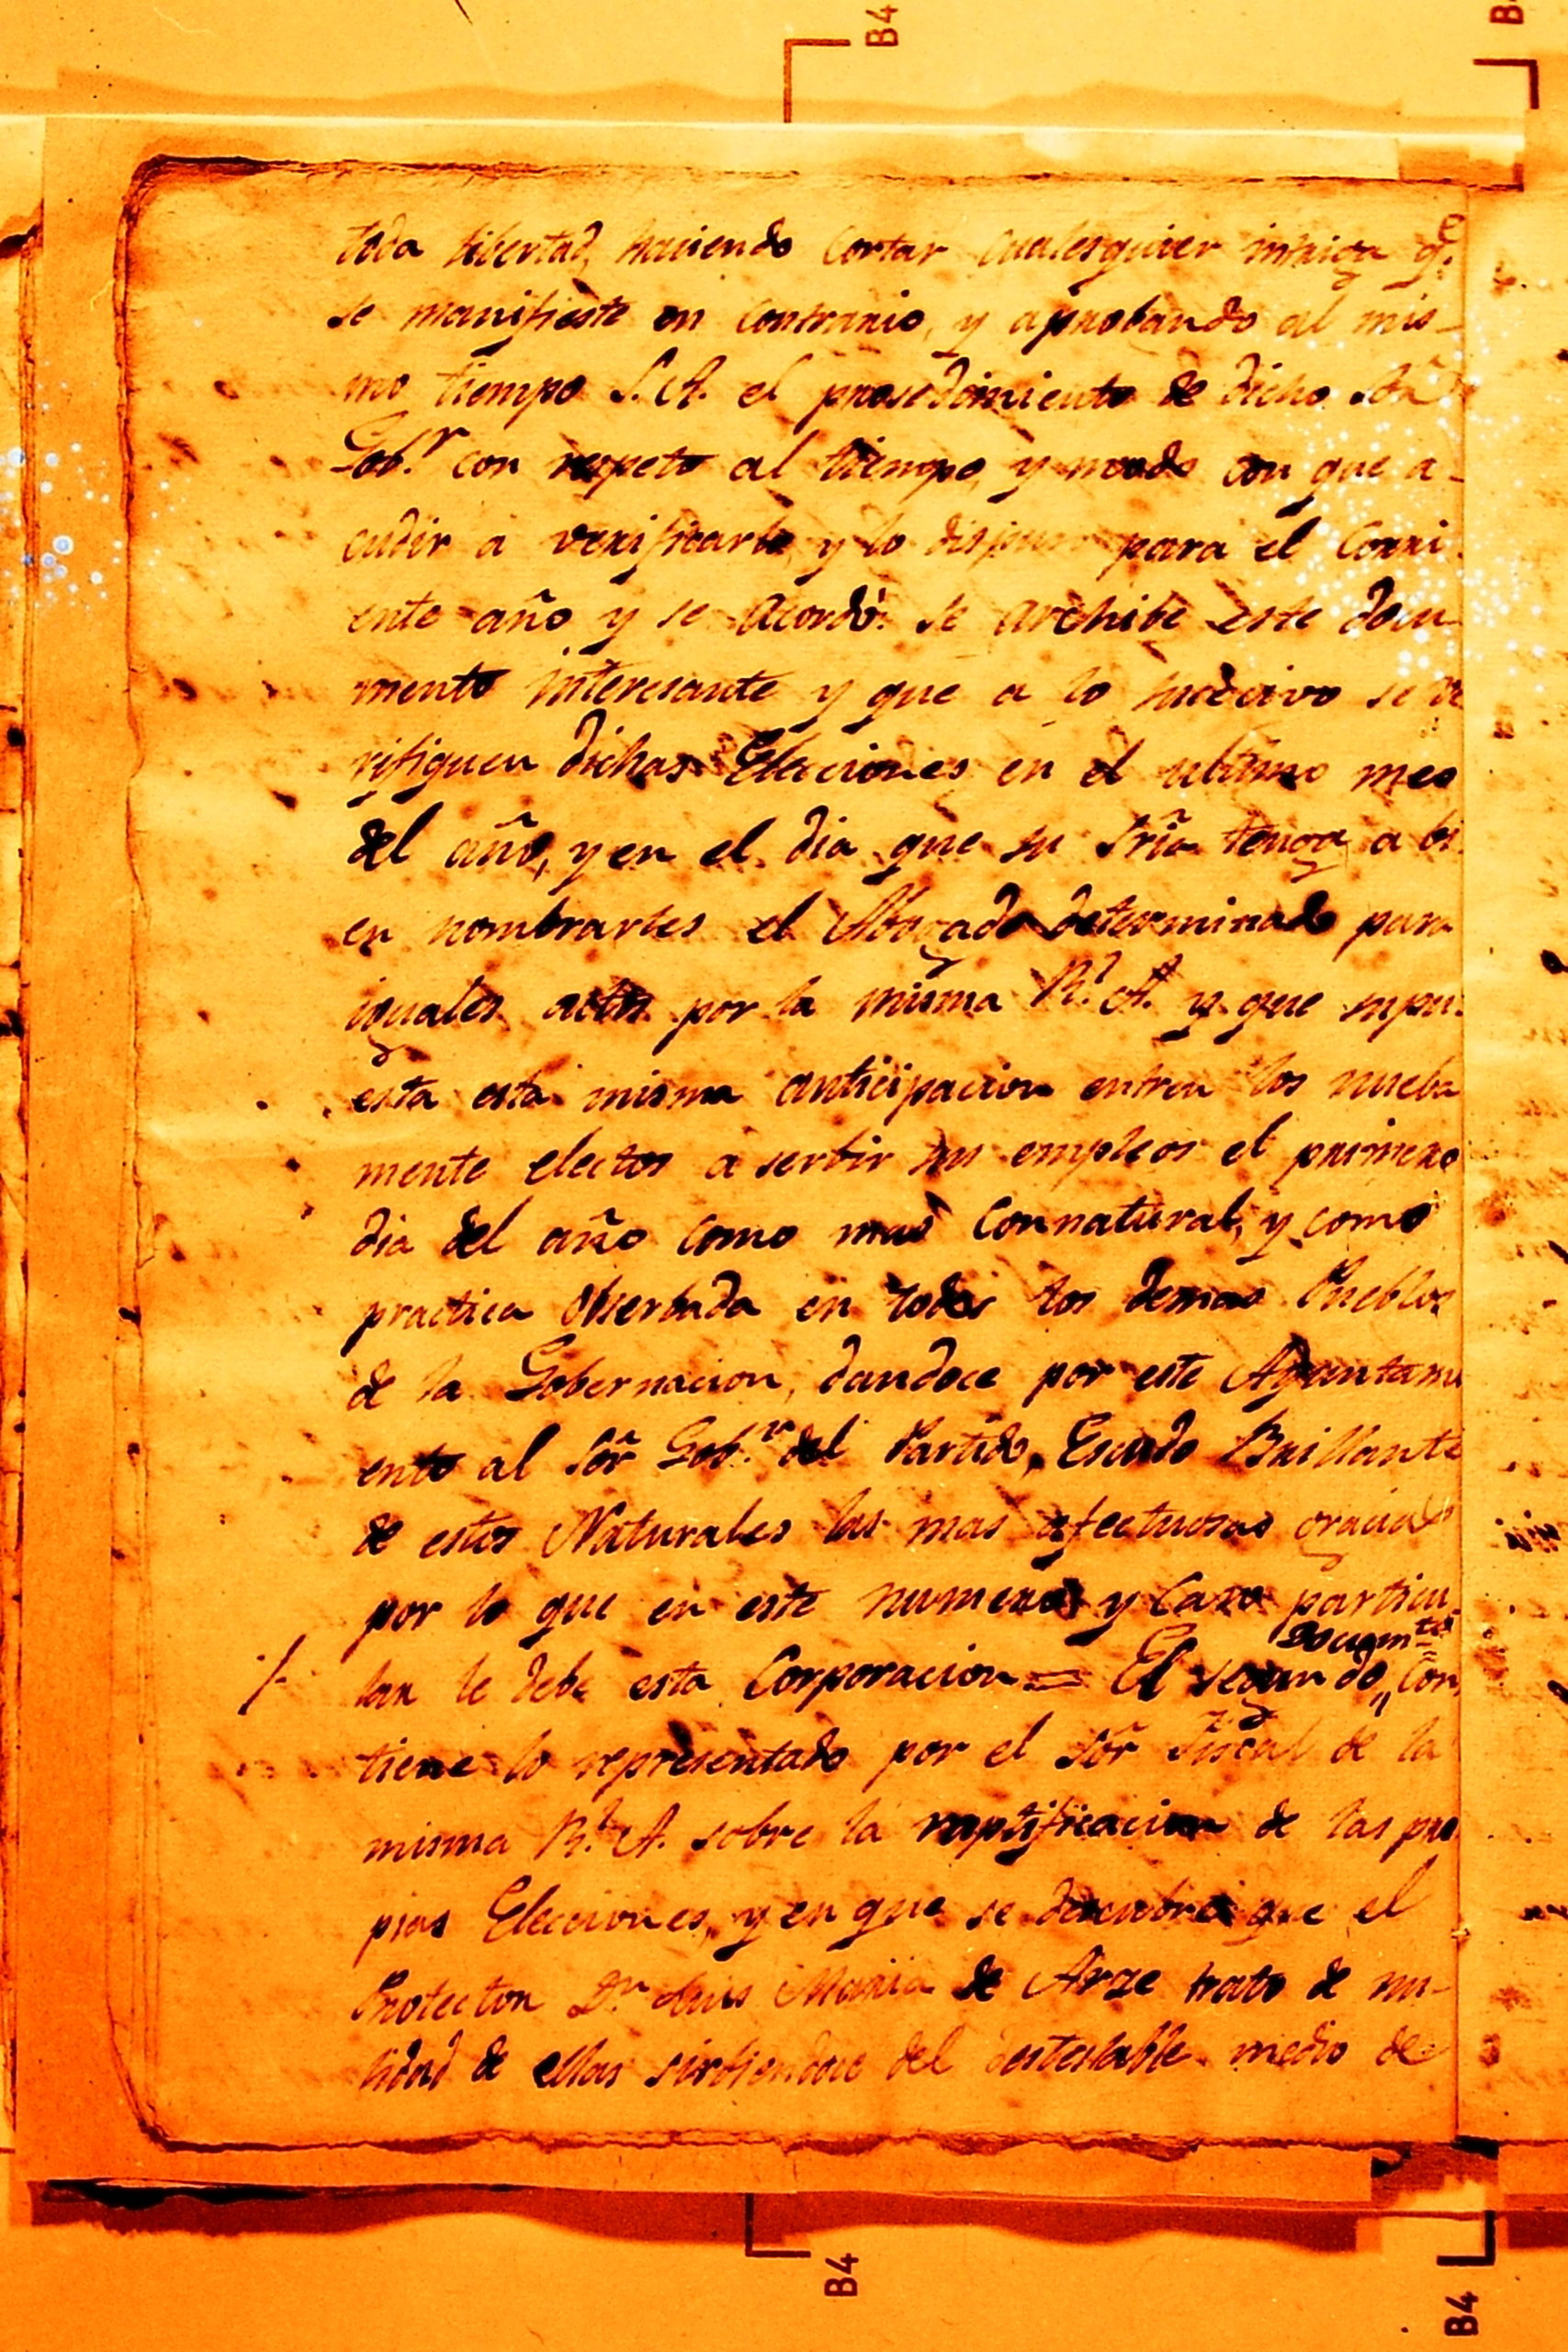 B4
B4
toda libertad, haciendo cortar qualesquier intriga q.e
se manifieste en contrario, y aprobando al mis-
mo tiempo S. A. el prosedimiento de dicho Sõr
Gob.r con respeto al tiempo, y modo con que a-
cudir a verificarla, y lo dispuso para el Corri
ente año y se acordó: se archibe este docu
mento interesante y que a lo sucecivo se ve
rifiquen dichas Elecciones en el ultimo mes
del año, y en el dia que su Sria tenga a bi
en nombrarles el Abogado determinado para
iguales actos por la misma R.l A. y que supu-
esta esta misma anticipacion entren los nueba
mente electos a serbir sus empleos el primero
dia del año como mas connatural, y como
practica obserbada en todos los demas Pueblos
de la Gobernacion, dandoce por este Ayuntami
ento al Sõr Gob.r del Partido, Escudo Brillante
de estos Naturales las mas afectuosas gracias
por lo que en este numero y caso particu
/. lar le debe esta Corporacion = El segundo Docum.to Con
tiene lo representado por el Sõr Fiscal de la
misma R.l A. sobre la raptificacion de las pro
pias Elecciones, y en que se descubre que el
Protector D.n Luis Maria de Arze trato de nu-
lidad de ellas sirbiendoce del destestable medio de
B4
B4